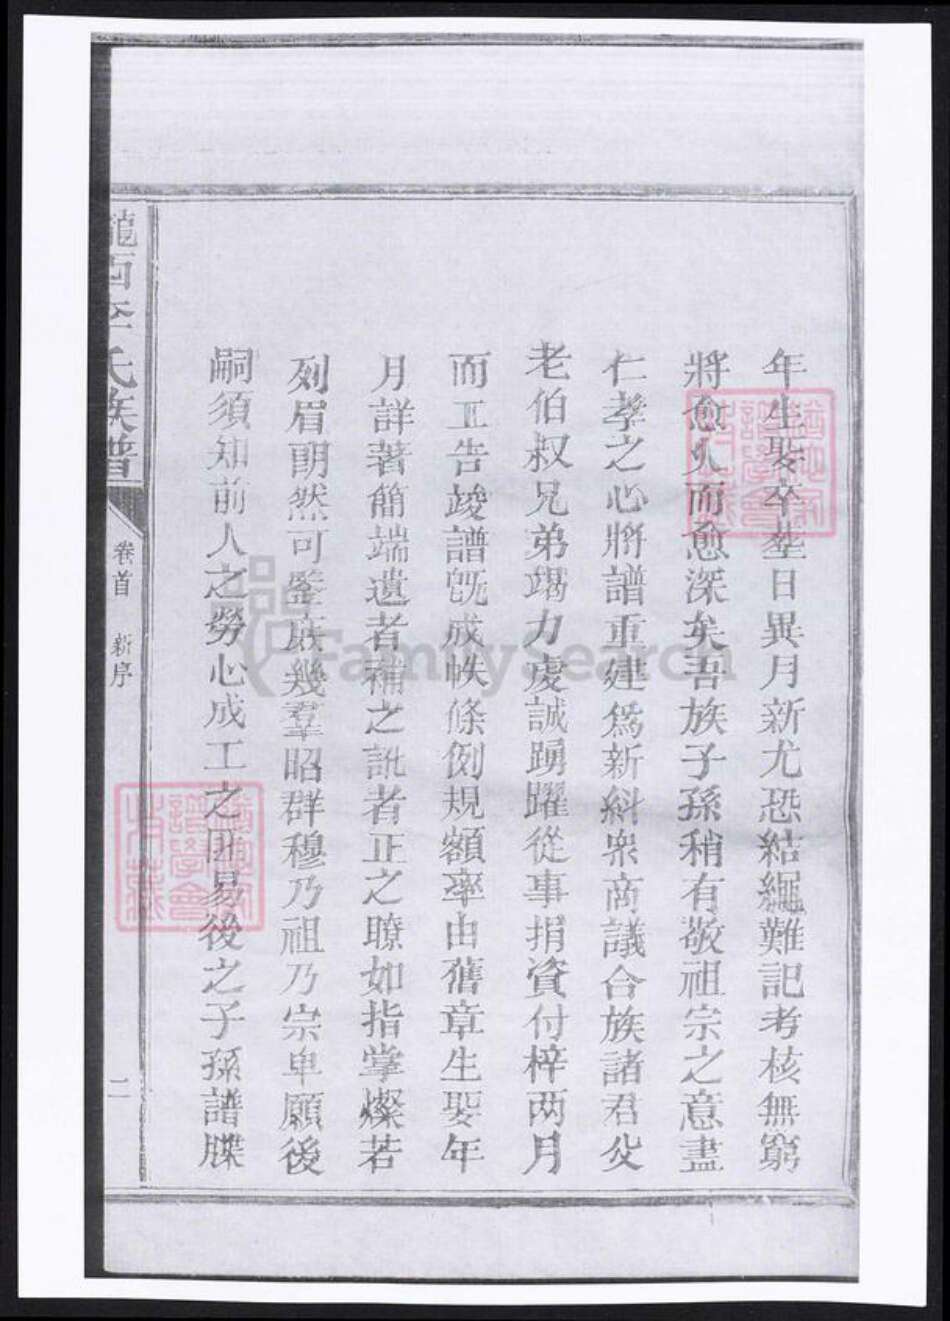 年生娶卒塟日異月新尤恐結繩難記考核無窮
將愈久而愈深矣吾族子孫稍有敬祖宗之意盡
仁孝之心將譜重建爲新糾衆商議合族諸君父
老伯叔兄弟竭力虔誠踴躍從事捐資付梓两月
而工告竣譜旣成帙條例規額率由舊章生娶年
月詳著簡端遺者補之訛者正之瞭如指掌燦若
列眉朗然可鑒族幾羣昭群穆乃祖乃宗卑願後
嗣須知前人之勞心成工之匪易後之子孫譜牒
隴西李氏族譜
卷首 新序
二
FamilySearch